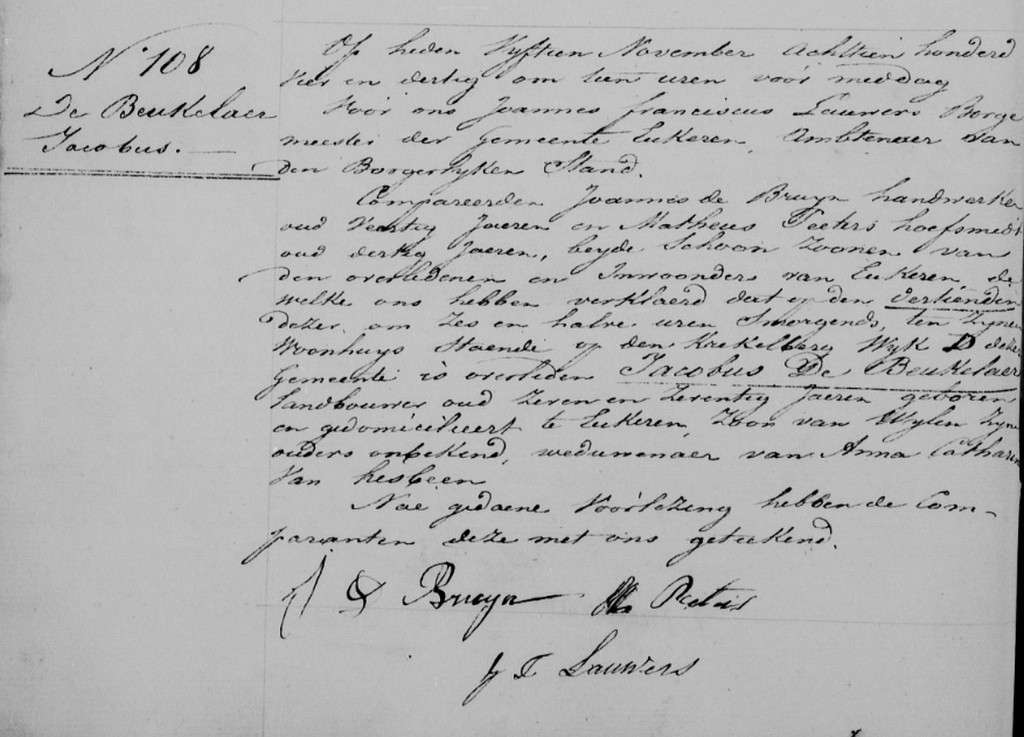 N° 108
De Beukelaer
Jacobus.
Op heden Vyftien November Achttien honderd
vier en dertig om tien uren voór middag
Voór ons Joannes franciscus Lauwers Borge
meester der Gemeente Eukeren, Ambtenaer van
den Borgerlyken Stand.
Compareerden Joannes de Bruyn handwerker
oud Veertig Jaeren en Matheus Peeters hoefsmedt
oud dertig Jaeren, beyde Schoon Zoonen van
den overledenen en Inwoonders van Eukeren, de
welke ons hebben verklaerd dat op den dertienden
dezer om zes en halve uren Smorgends, ten Zynen
Woonhuys Staende op den Krekelberg Wyk D dezer
Gemeente is overleden Jacobus De Beukelaer
landbouwer oud Zeven en Zeventig Jaeren geboren
en gedomicilieert te Eukeren, Zoon van Wylen Zyne
ouders onbekend, weduwenaer van Anna Catharin
Van hesbeen
Nae gedaene Voórlezing hebben de Com-
paranten deze met ons geteekend.
J D Bruyn M Peeters
J F Lauwers